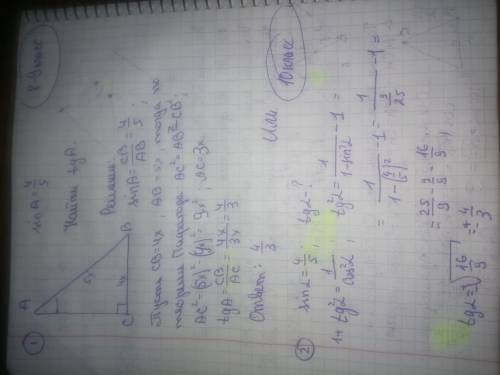 8-9 класс
1
sin A = 4/5
Найти tg A
A
B
C
5x
4x
Решение.
sin A = CB/AB = 4/5;
Пусть CB = 4x, AB = 5x, тогда по
теореме Пифагора AC² = AB² - CB²;
AC² = (5x)² - (4x)² = 9x²; AC = 3x
tg A = CB/AC = 4x/3x = 4/3
Ответ: 4/3
Или
10 класс
2
sin α = 4/5, tg α - ?
1 + tg²α = 1/cos²α, tg²α = 1/(1 - sin²α) - 1 =
= 1/(1 - (4/5)²) - 1 = 1/(9/25) - 1 =
= 25/9 - 9/9 = 16/9;
tg α = √(16/9) = ± 4/3